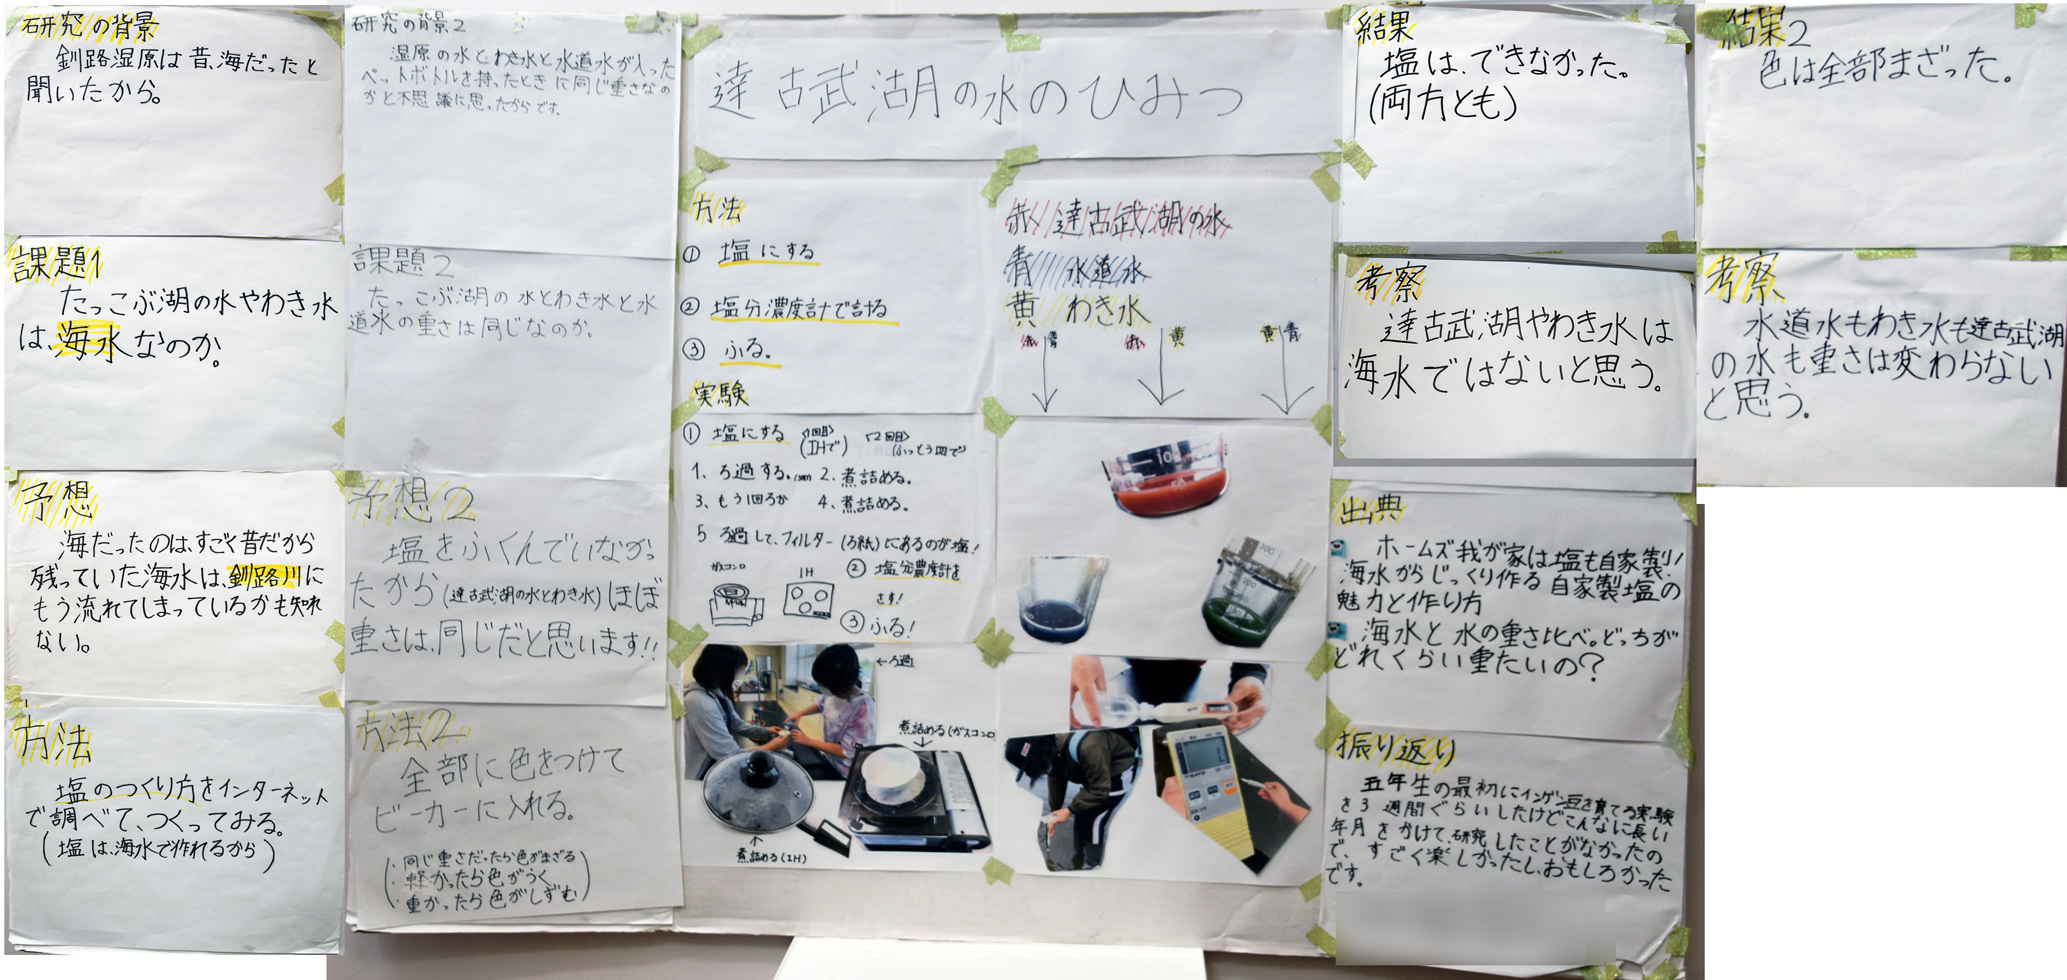 研究の背景
釧路湿原は昔、海だったと
聞いたから。
課題1
たっこぶ湖の水やわき水
は、海水なのか。
予想
海だったのは、すごく昔だから
残っていた海水は、釧路川に
もう流れてしまっているかも知れ
ない。
方法
塩のつくり方をインターネット
で調べて、つくってみる。
(塩は、海水で作れるから)
研究の背景2
湿原の水とわき水と水道水が入った
ペットボトルを持ったときに同じ重さなの
かと不思議に思ったからです。
課題2
たっこぶ湖の水とわき水と水
道水の重さは同じなのか。
予想2
塩をふくんでいなかっ
たから(達古武湖の水とわき水)ほぼ
重さは、同じだと思います!!
方法2
全部に色をつけて
ビーカーに入れる。
・同じ重さだったら色がまざる
・軽かったら色がうく
・重かったら色がしずむ
達古武湖の水のひみつ
方法
① 塩にする
② 塩分濃度計で計る
③ ふる。
実験
① 塩にする <1回目> (IHで) <2回目>
1、ろ過する。 2、煮詰める。
3、もう1回ろか 4、煮詰める。
5 ろ過して、フィルター(ろ紙)にあるのが塩!
ガスコンロ IH
② 塩分濃度計を
さす!
③ ふる!
←ろ過
煮詰める(ガスコンロ
煮詰める(IH)
赤 達古武湖の水
青 水道水
黄 わき水
赤 青 赤 黄 黄 青
結果
塩は、できなかった。
(両方とも)
考察
達古武湖やわき水は
海水ではないと思う。
出典
ホームズ我が家は塩も自家製!
海水からじっくり作る自家製塩の
魅力と作り方
海水と水の重さ比べ。どっちが
どれくらい重たいの?
振り返り
五年生の最初にインゲン豆を育てる実験
を3週間ぐらいしたけどこんなに長い
年月をかけて、研究したことがなかったの
で、すごく楽しかったし、おもしろかった
です。
結果2
色は全部まざった。
考察
水道水もわき水も達古武湖
の水も重さは変わらない
と思う。